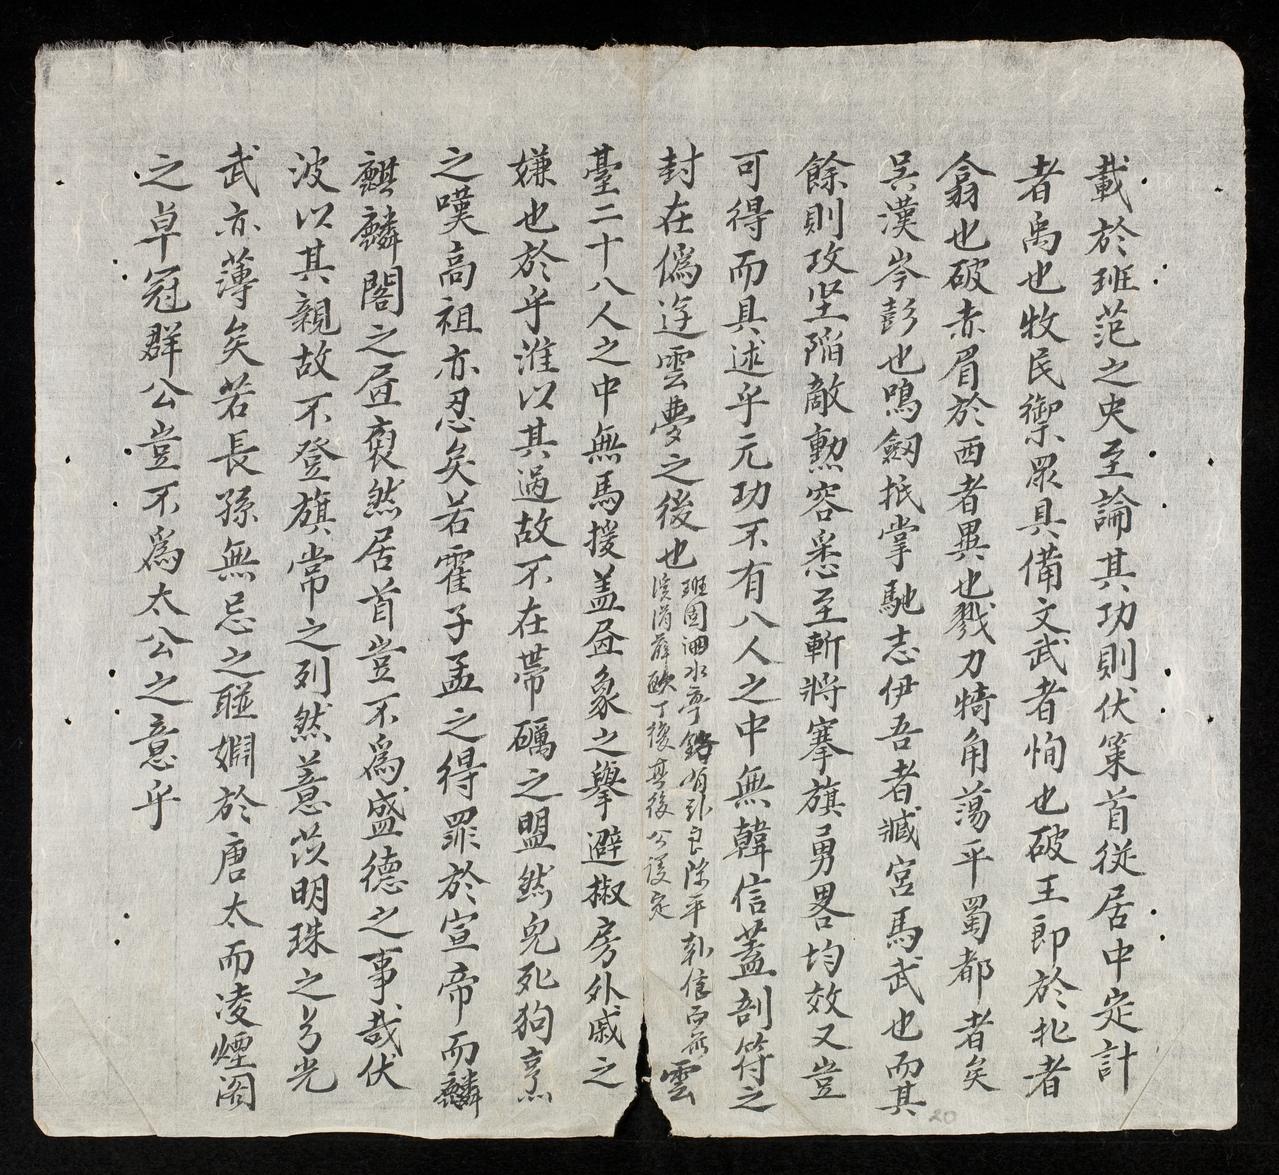 載於班范之史至論其功則伏策首從居中定計
者禹也牧民禦眾具備文武者恂也破王郎於北者
弇也破赤眉於西者異也戮力犄角蕩平蜀都者矣
吳漢岑彭也鳴劔抵掌馳志伊吾者臧宮馬武也而其
餘則攻坚陷敵勲容悉至斬將搴旗勇畧均效又豈
可得而具述乎元功不有八人之中無韓信蓋剖符之
封在僞遊雲夢之後也
班固泗水亭銘有引良陳平韓信而無
薛歐丁復
雲
臺二十八人之中無馬援盖啚象之擧避椒房外戚之
嫌也於乎淮以其過故不在帶礪之盟然兔死狗烹
之嘆高祖亦忍矣若霍子孟之得罪於宣帝而麟
麒麟閣之啚裒然居首豈不爲盛德之事哉伏
波以其親故不登旗常之列然薏苡明珠之
光
武亦薄矣若長孫無忌之聯婣於唐太而凌煙阁
之卓冠群公豈不爲太公之意乎
20